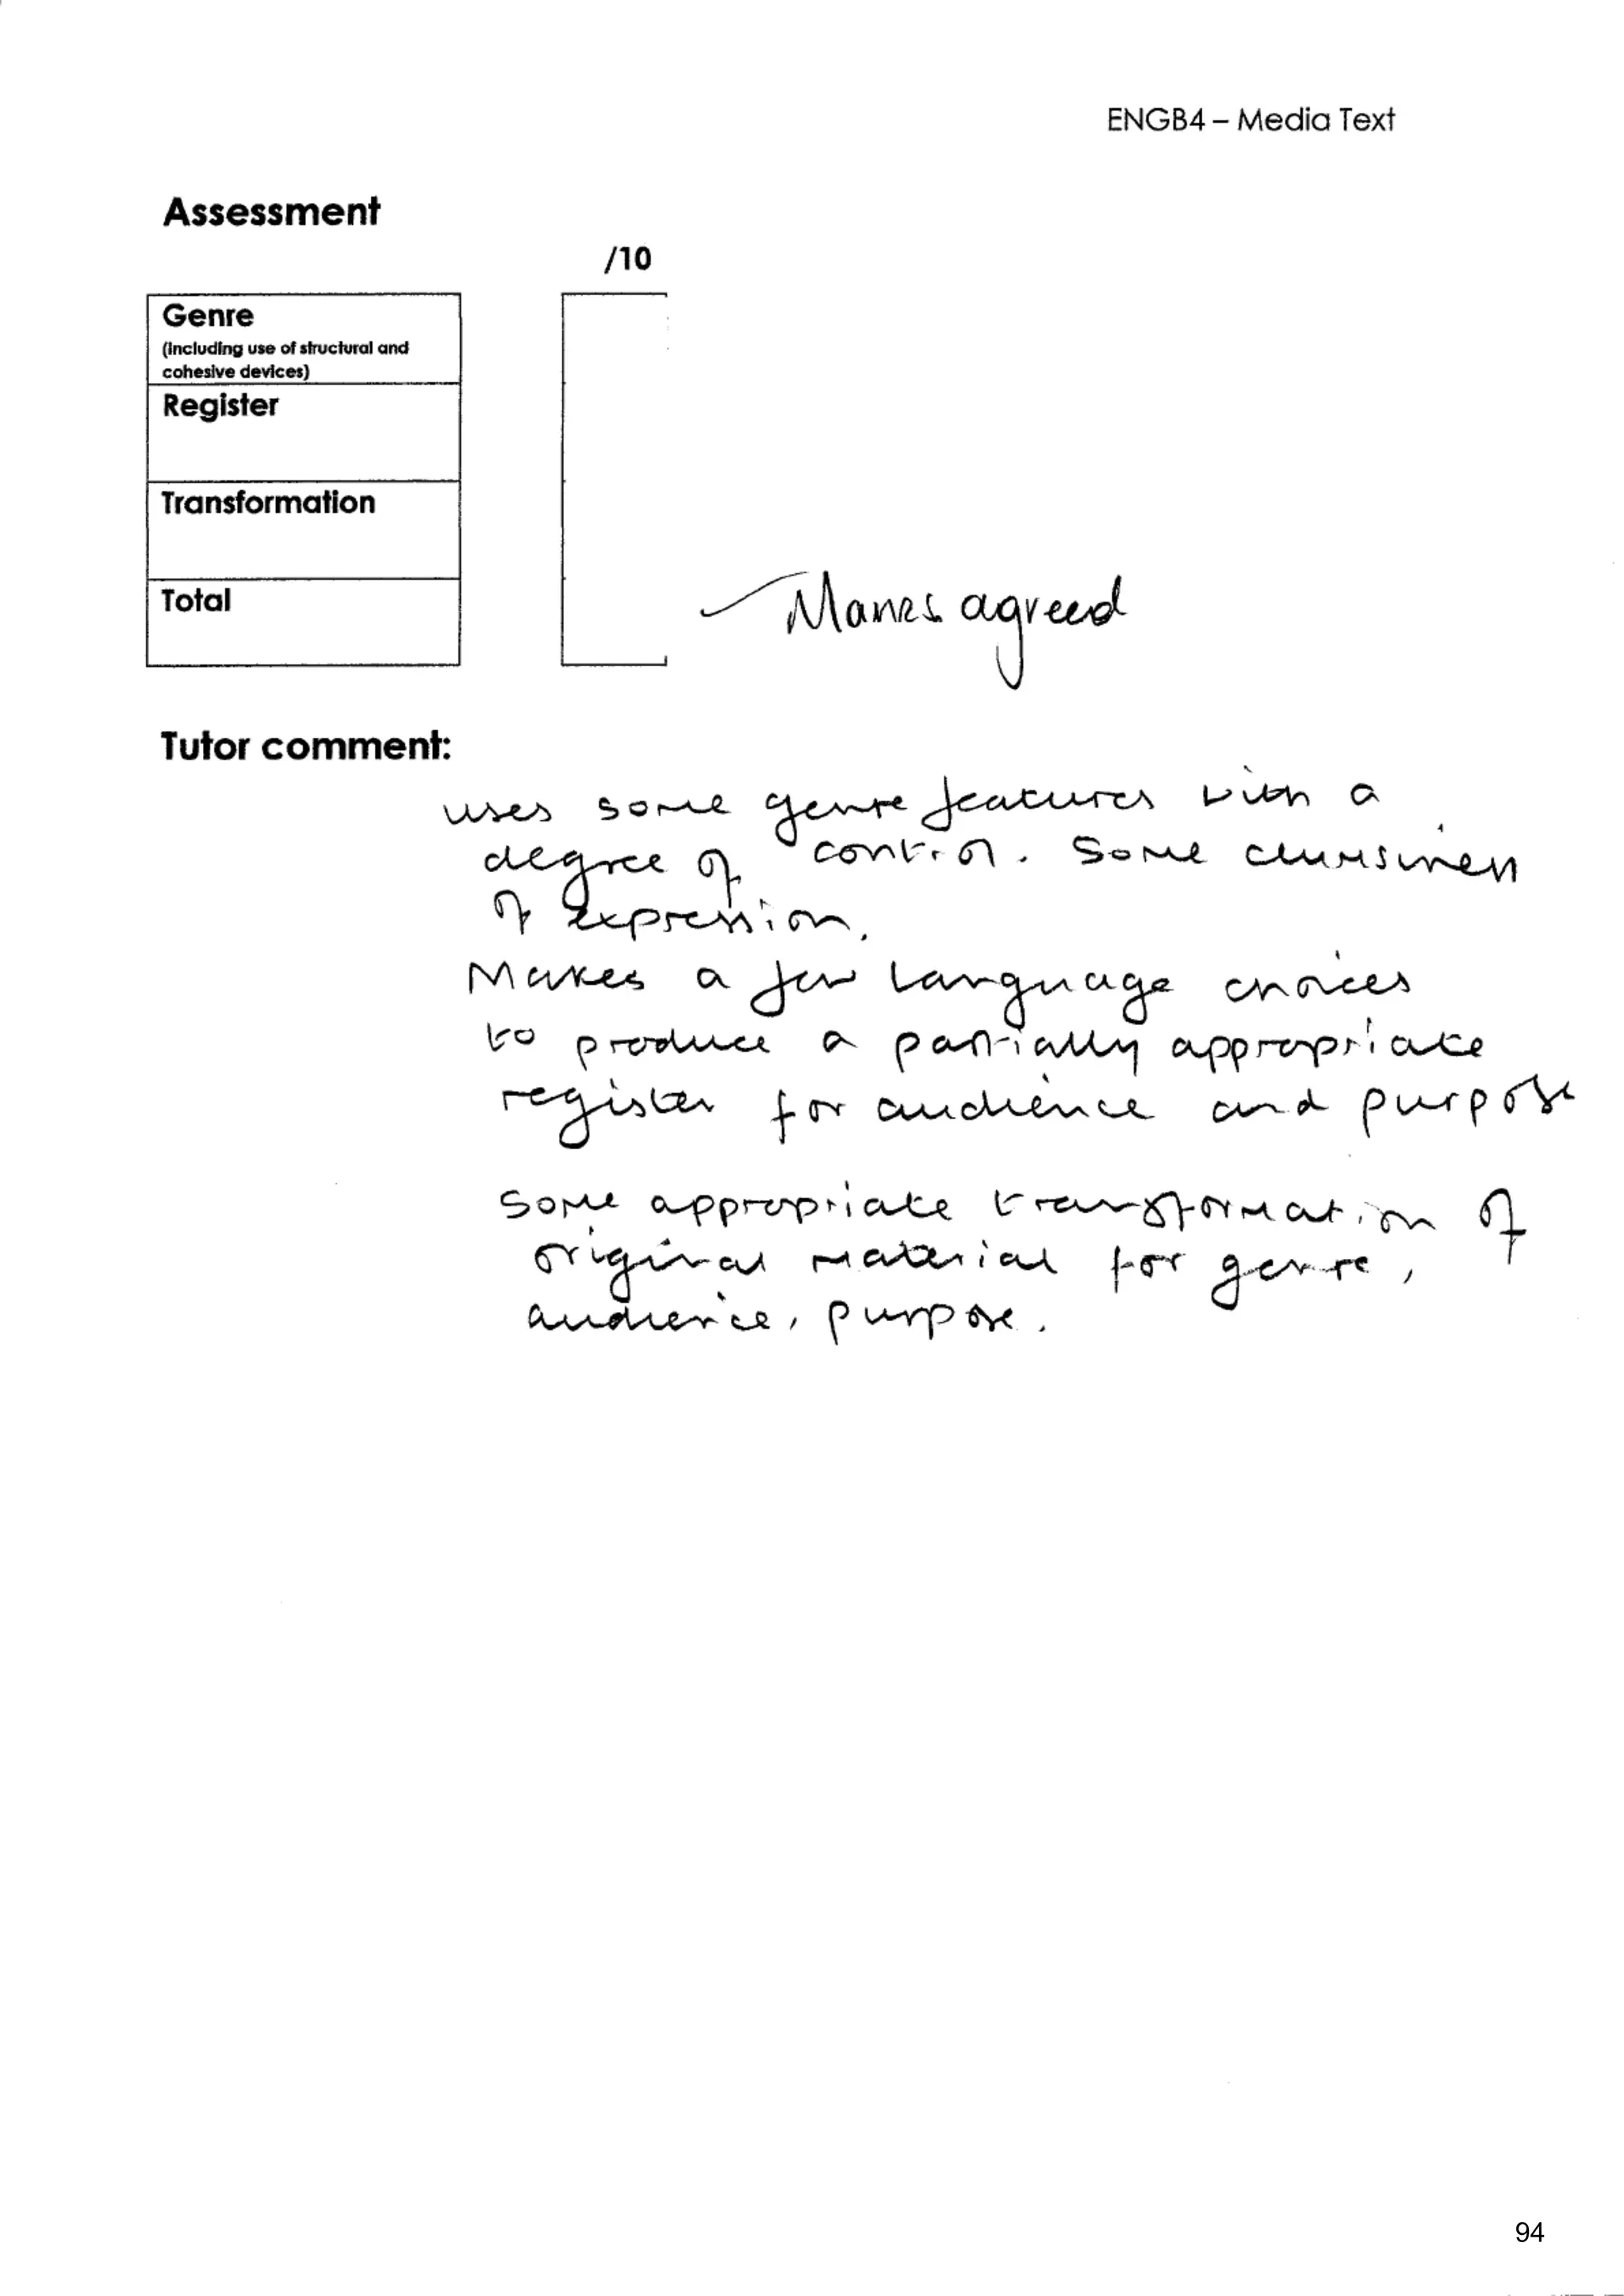 ENGB4 – Media Text
Assessment
/10
Genre
(including use of structural and
cohesive devices)
Register
Transformation
Total
Marks agreed
Tutor comment:
uses some genre features with a
degree of control. Some clumsiness
of expression.
Makes a few language choices
to produce a partially appropriate
register for audience and purpose
Some appropriate transformation of
original material for genre,
audience, purpose.
94